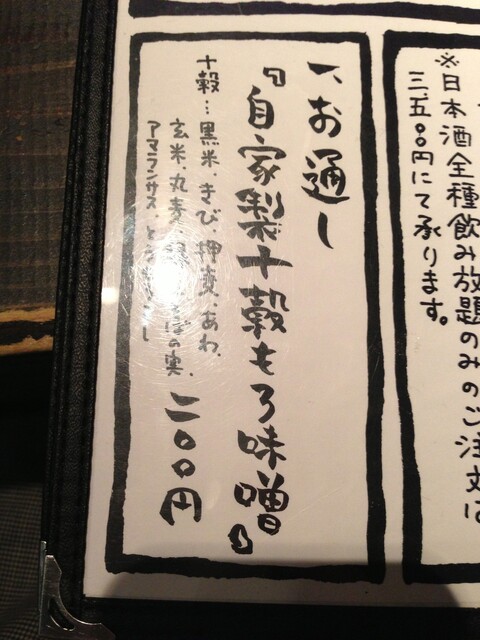 ※日本酒全種飲み放題のみのご注文は
三、五〇〇円にて承ります。
一、お通し
『自家製十穀もろ味噌』
十穀…黒米、きび、押麦、あわ、
玄米、丸麦、そばの実、
アマランサス、
二〇〇円